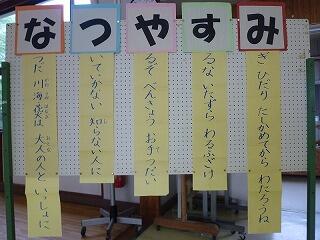 なつやすみ
つだ 川海花火は 大人の人といっしょに
いて いかない 知らない人に
るぞ べんきょう お手つだい
るな いたずら わるふざけ
ぎ ひだり たしかめてから わたろうね